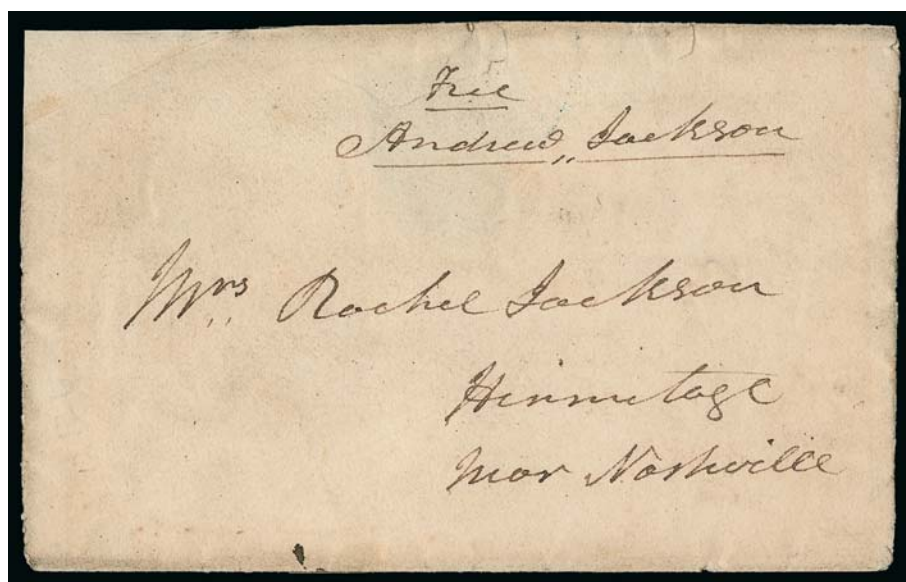 Free
Andrew,, Jackson
Mrs,, Rachel Jackson
Hermitage
near Nashville